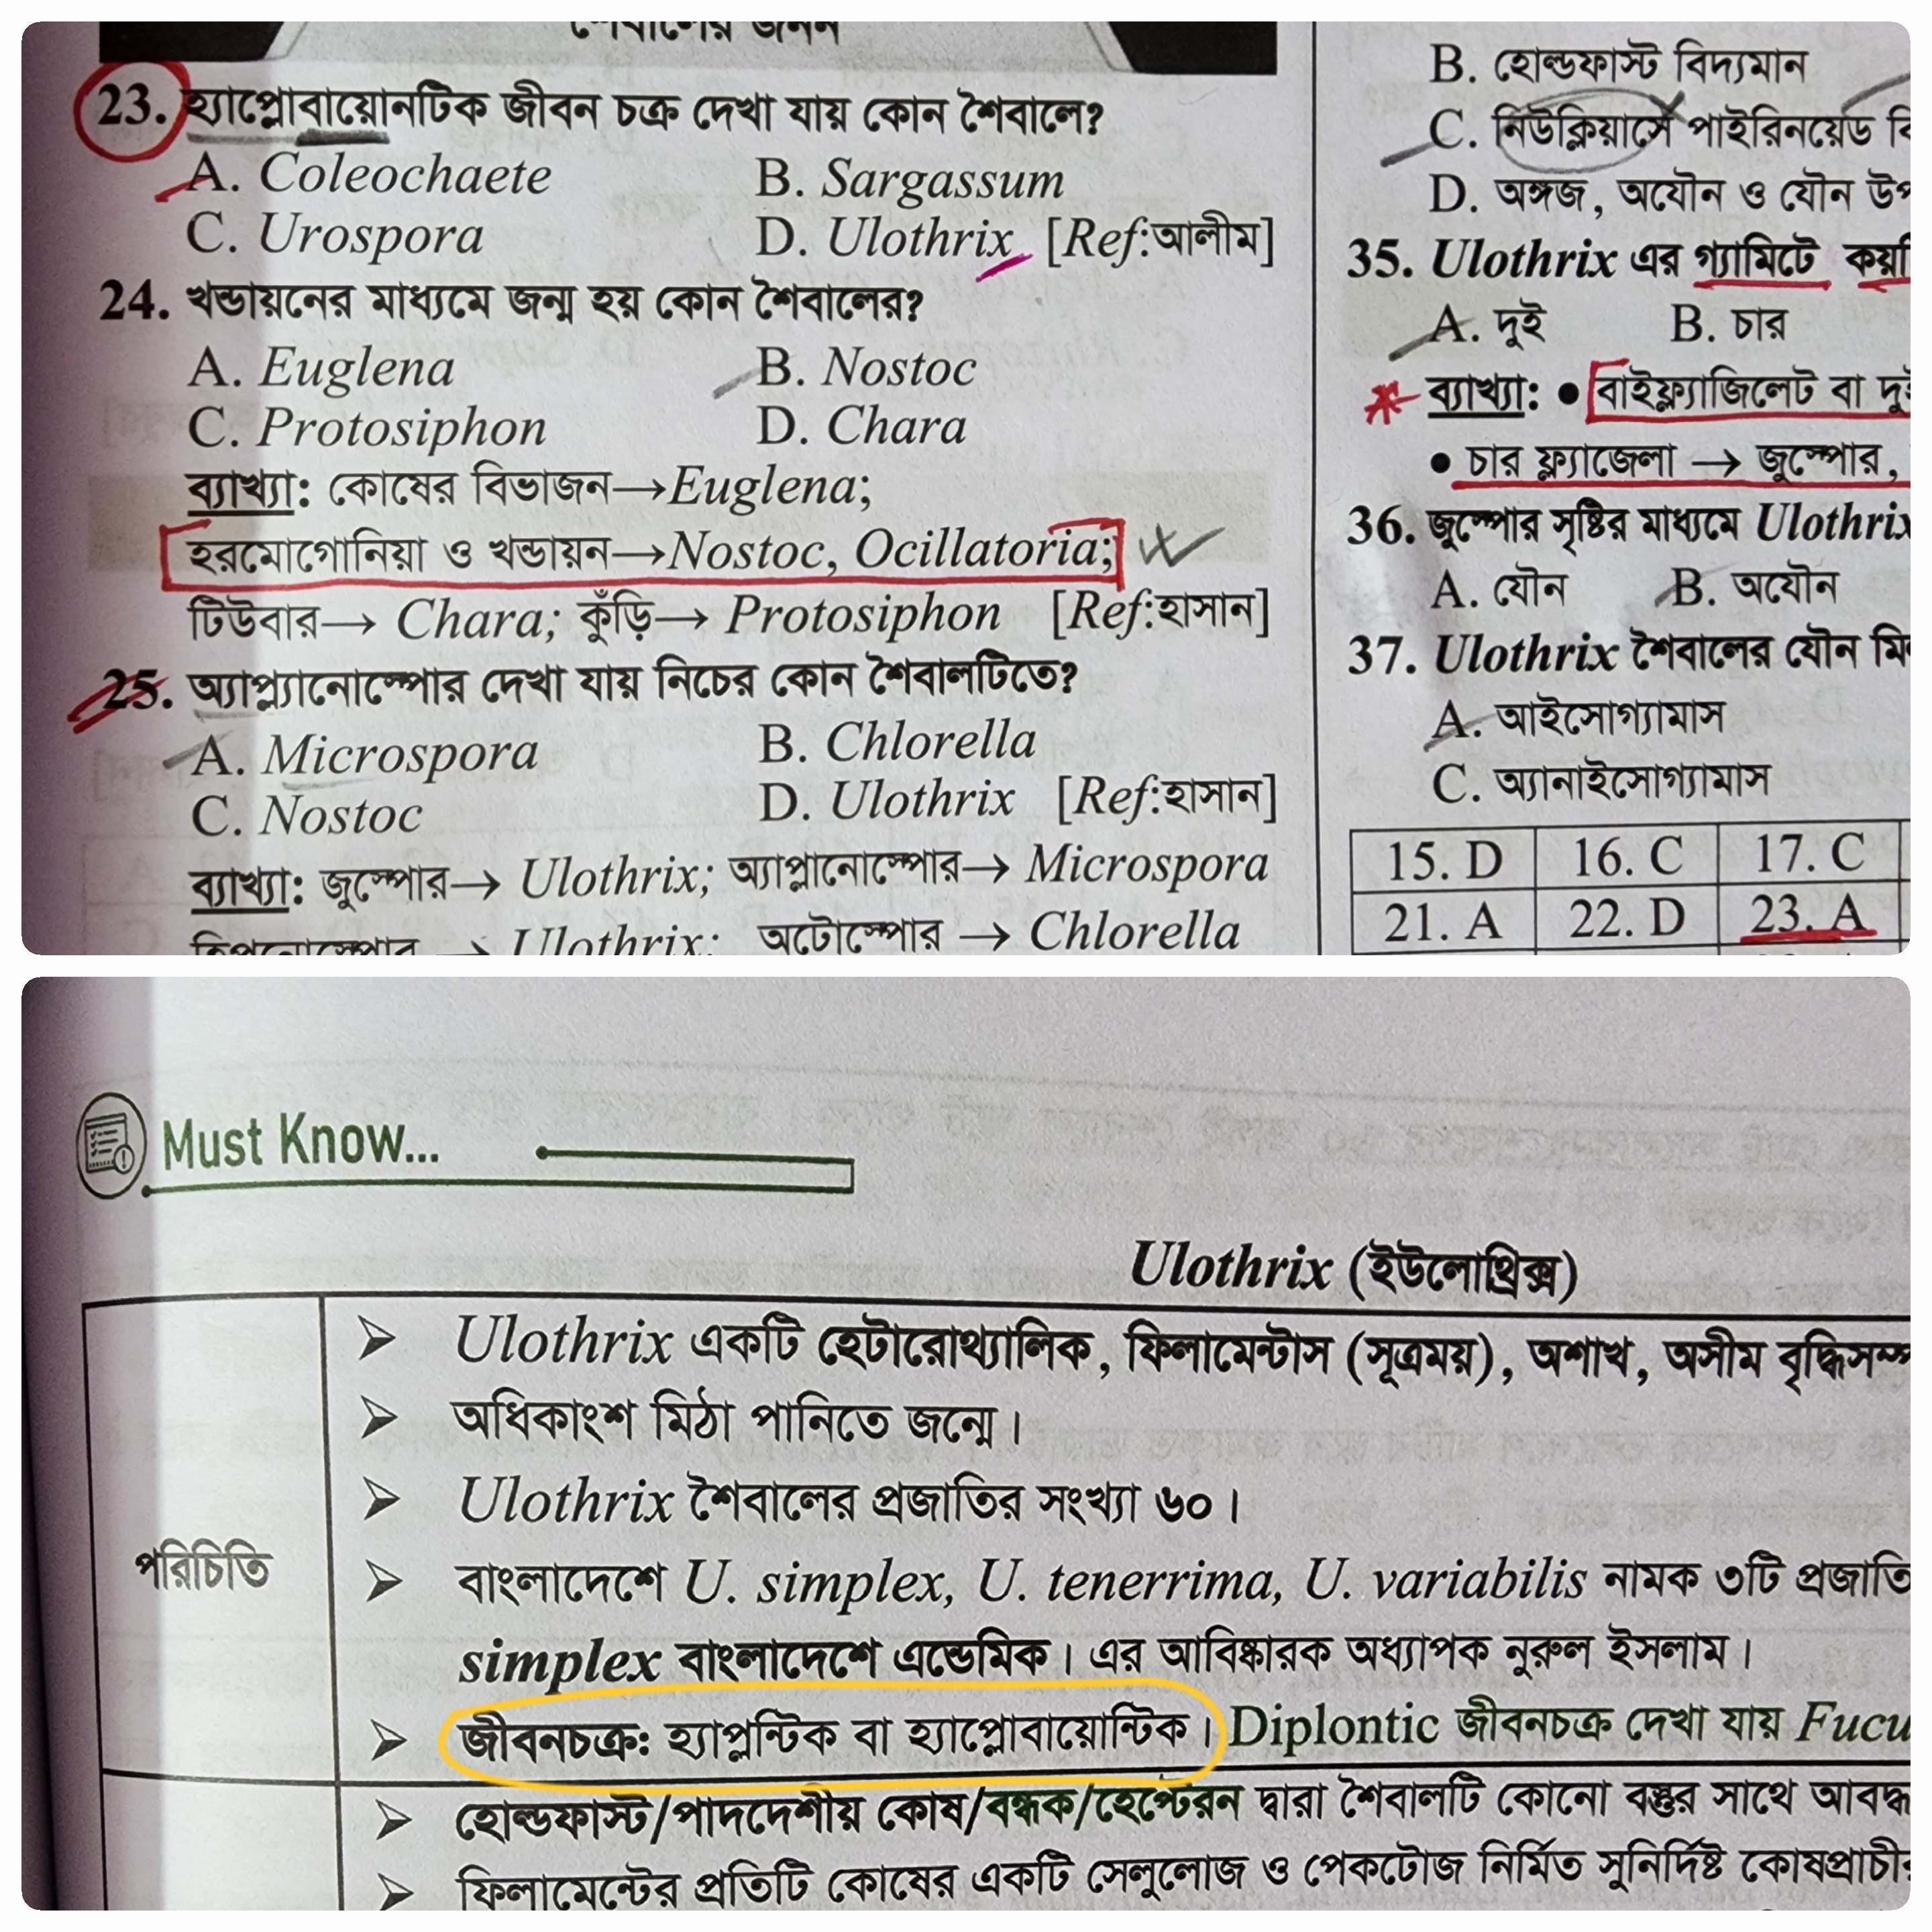 শৈবালের জনন
23. হ্যাপ্লোবায়োনটিক জীবন চক্র দেখা যায় কোন শৈবালে?
A. Coleochaete B. Sargassum
C. Urospora D. Ulothrix [Ref:আলীম]
24. খন্ডায়নের মাধ্যমে জন্ম হয় কোন শৈবালের?
A. Euglena B. Nostoc
C. Protosiphon D. Chara
ব্যাখ্যা: কোষের বিভাজন→Euglena;
হরমোগোনিয়া ও খন্ডায়ন→Nostoc, Ocillatoria;
টিউবার→ Chara; কুঁড়ি→ Protosiphon [Ref:হাসান]
25. অ্যাপ্ল্যানোস্পোর দেখা যায় নিচের কোন শৈবালটিতে?
A. Microspora B. Chlorella
C. Nostoc D. Ulothrix [Ref:হাসান]
ব্যাখ্যা: জুস্পোর→ Ulothrix; অ্যাপ্লানোস্পোর→ Microspora
হিপনোস্পোর → Ulothrix; অটোস্পোর → Chlorella
B. হোল্ডফাস্ট বিদ্যমান
C. নিউক্লিয়াসে পাইরিনয়েড বি
D. অঙ্গজ, অযৌন ও যৌন উপ
35. Ulothrix এর গ্যামিটে কয়টি
A. দুই B. চার
ব্যাখ্যা: ● বাইফ্ল্যাজিলেট বা দুই
● চার ফ্ল্যাজেলা → জুস্পোর,
36. জুস্পোর সৃষ্টির মাধ্যমে Ulothrix
A. যৌন B. অযৌন
37. Ulothrix শৈবালের যৌন মি
A. আইসোগ্যামাস
C. অ্যানাইসোগ্যামাস
15. D 16. C 17. C
21. A 22. D 23. A
Must Know...
Ulothrix (ইউলোথ্রিক্স)
পরিচিতি
➢ Ulothrix একটি হেটারোথ্যালিক, ফিলামেন্টাস (সূত্রময়), অশাখ, অসীম বৃদ্ধিসম্প
➢ অধিকাংশ মিঠা পানিতে জন্মে।
➢ Ulothrix শৈবালের প্রজাতির সংখ্যা ৬০।
➢ বাংলাদেশে U. simplex, U. tenerrima, U. variabilis নামক ৩টি প্রজাতি
simplex বাংলাদেশে এন্ডেমিক। এর আবিষ্কারক অধ্যাপক নুরুল ইসলাম।
➢ জীবনচক্র: হ্যাপ্লন্টিক বা হ্যাপ্লোবায়োন্টিক। Diplontic জীবনচক্র দেখা যায় Fucu
➢ হোল্ডফাস্ট/পাদদেশীয় কোষ/বন্ধক/হেপ্টেরন দ্বারা শৈবালটি কোনো বস্তুর সাথে আবদ্ধ
➢ ফিলামেন্টের প্রতিটি কোষের একটি সেলুলোজ ও পেকটোজ নির্মিত সুনির্দিষ্ট কোষপ্রাচীর